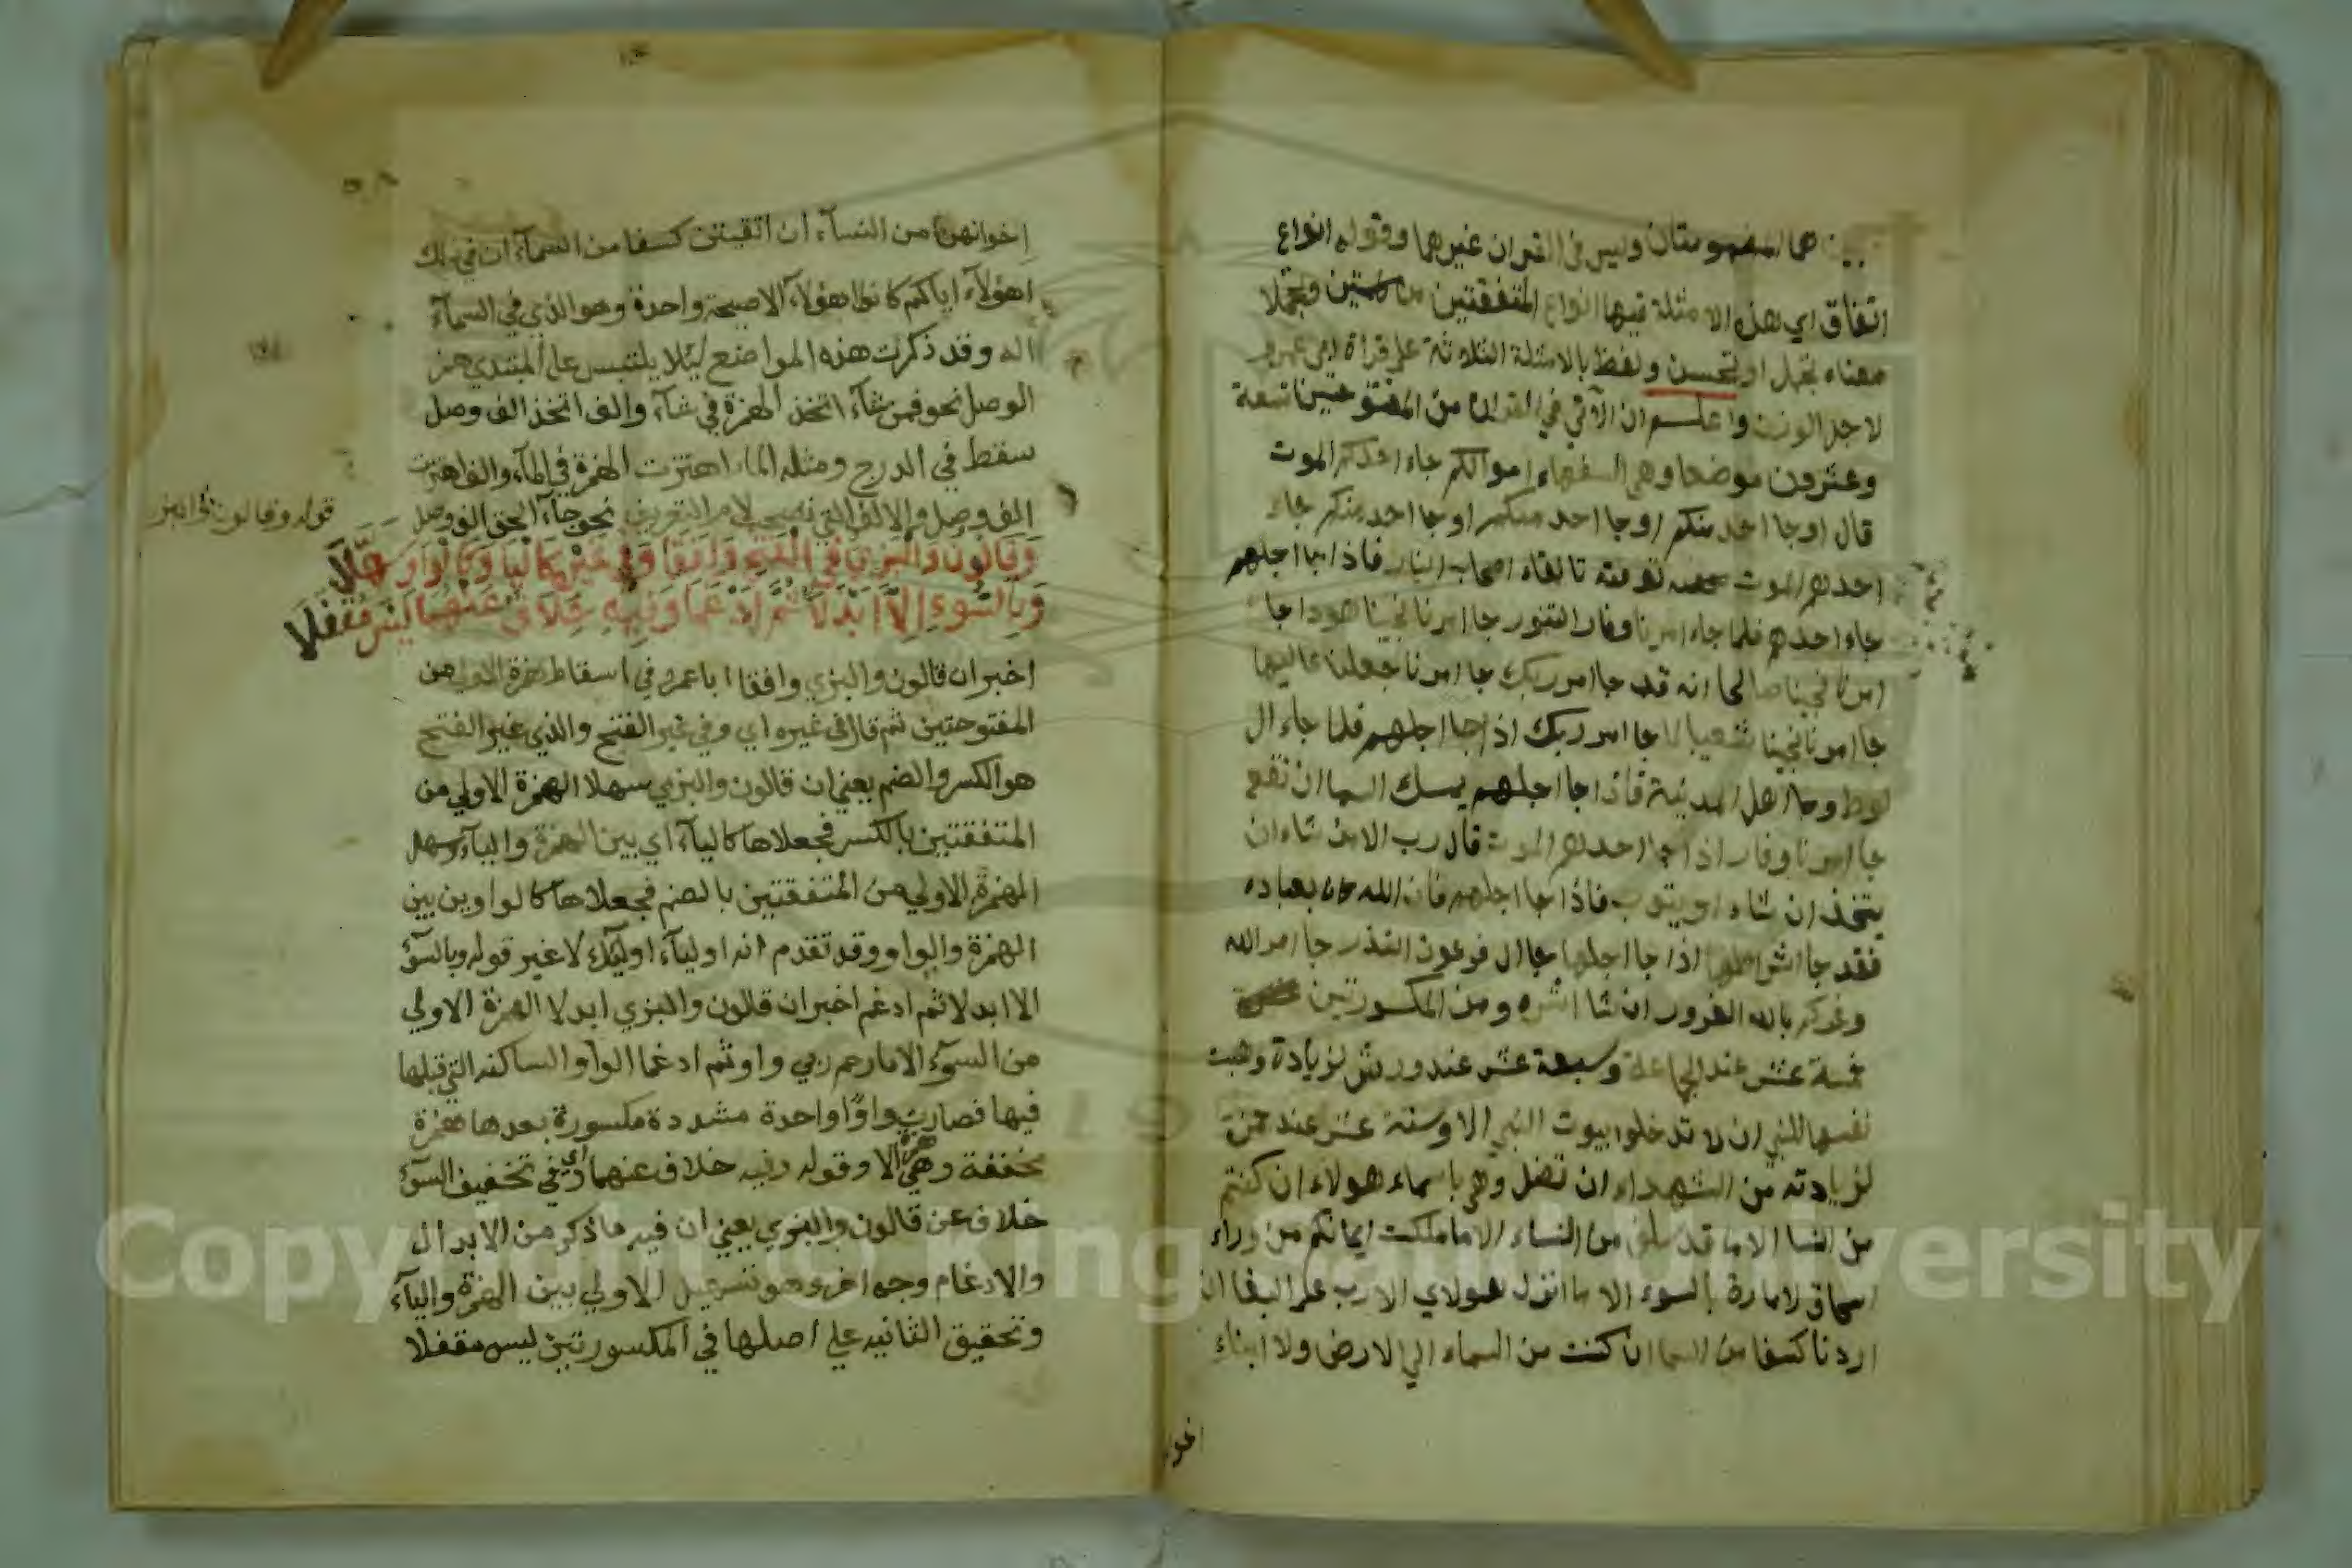 هما المضمومتان وليس في القران غيرهما وقوله انواع
اتفاق اي هذه الامثلة فيها انواع المتفقتين وتجملا
معناه تجمل او تحسن ولفظ بالامثلة الثلاثة على قراة ابي عمرو
لاجل الوزن واعلم ان الآتي في القران من المفتوحتين تسعة
وعشرون موضعا وهي السفهاء اموالكم جاء احدكم الموت
قال او جا احد منكم او جا احد منكم او جا احد منكم جاء
احدهم الموت تلقاء اصحاب النار فاذا جا اجلهم
جاء احدهم فلما جاء امرنا وفار التنور جا امرنا نجينا هودا جا
امرنا نجينا صالحا انه قد جا امر ربك جا امرنا جعلنا عاليها
جا امرنا نجينا شعيبا لما جا امر ربك اذا جا اجلهم فلما جاء ال
لوط وجا اهل المدينة فاذا جا اجلهم يمسك السما ان تقع
جا امرنا وفار اذا جا احدهم الموت قال رب الا من شاء ان
يتخذ ان شاء او يتوب فاذا جا اجلهم فان الله كان بعباده
فقد جا اشراطها اذا جا اجلها جا ال فرعون النذر جا امر الله
وغركم بالله الغرور ان شا انشره ومن المكسورتين
خمسة عشر عند الجماعة وسبعة عشر عند ورش لزيادة وهبت
نفسها للنبي ان لا تدخلوا بيوت النبي الا وستة عشر عند حمزة
لزيادته من الشهداء ان تضل وهي باسماء هولاء ان كنتم
من النسا الا ما قد سلف من النساء الا ما ملكت ايمانكم من وراء
اسحاق لامارة بالسوء الا ما انزل هولاي الا رب على البغا ان
اردنا كسفا من السما ان كنت من السماء الى الارض ولا ابناء
اخوانهن من النسآء ان اتقيتن كسفا من السمآء ان في ذلك
اهولآء اياكم كانوا هؤلآء الا صيحة واحدة وهو الذي في السمآء
اله وقد ذكرت هذه المواضع ليلا يلتبس على المبتدي همز
الوصل نحو فمن شآء اتخذ الهمزة في شآء والف اتخذ الف وصل
سقط في الدرج ومثله المآء اهتزت الهمزة في المآء والف اهتزت
الف وصل والالف التي تصحب لام التعريف نحو جآء الحق الف وصل
قوله وقالون والبز
وَقَالُونُ وَالْبَزِّيُّ فِي الْفَتْحِ وَافَقَا وَفِي غَيْرِهِ كَالْيَا وَكَالْوَاوِ سَهَّلَا
وَبِالسُّوءِ إِلَّا أَبْدَلَا ثُمَّ أَدْغَمَا وَفِيهِ خِلَافٌ عَنْهُمَا لَيْسَ مُقْفَلَا
اخبر ان قالون والبزي وافقا ابا عمرو في اسقاط همزة الاولى من
المفتوحتين ثم قال في غيره اي وفي غير الفتح والذي غير الفتح
هو الكسر والضم يعني ان قالون والبزي سهلا الهمزة الاولى من
المتفقتين بالكسر فجعلاها كاليآء اي بين الهمزة واليآء وسهلا
الهمزة الاولى من المتفقتين بالضم فجعلاها كالواو بين بين
الهمزة والواو وقد تقدم انه اوليآء اوليك لا غير قوله وبالسوء
الا ابدلا ثم ادغم اخبر ان قالون والبزي ابدلا الهمزة الاولي
من السوء الا ما رحم ربي واو ثم ادغما الواو الساكنه التي قبلها
فيها فصارت واوا واحدة مشددة مكسورة بعدها همزة
مخففة وهي همزة الا وقوله وفيه خلاف عنهما اي وفي تخفيف السوء
خلاف عن قالون والبزي يعني ان فيه ما ذكر من الابدال
والادغام وجه اخر وهو تسهيل الاولي بين الهمزة واليآء
وتحقيق الثانيه علي اصلها في المكسورتين ليس مقفلا
Copyright © King Saud University